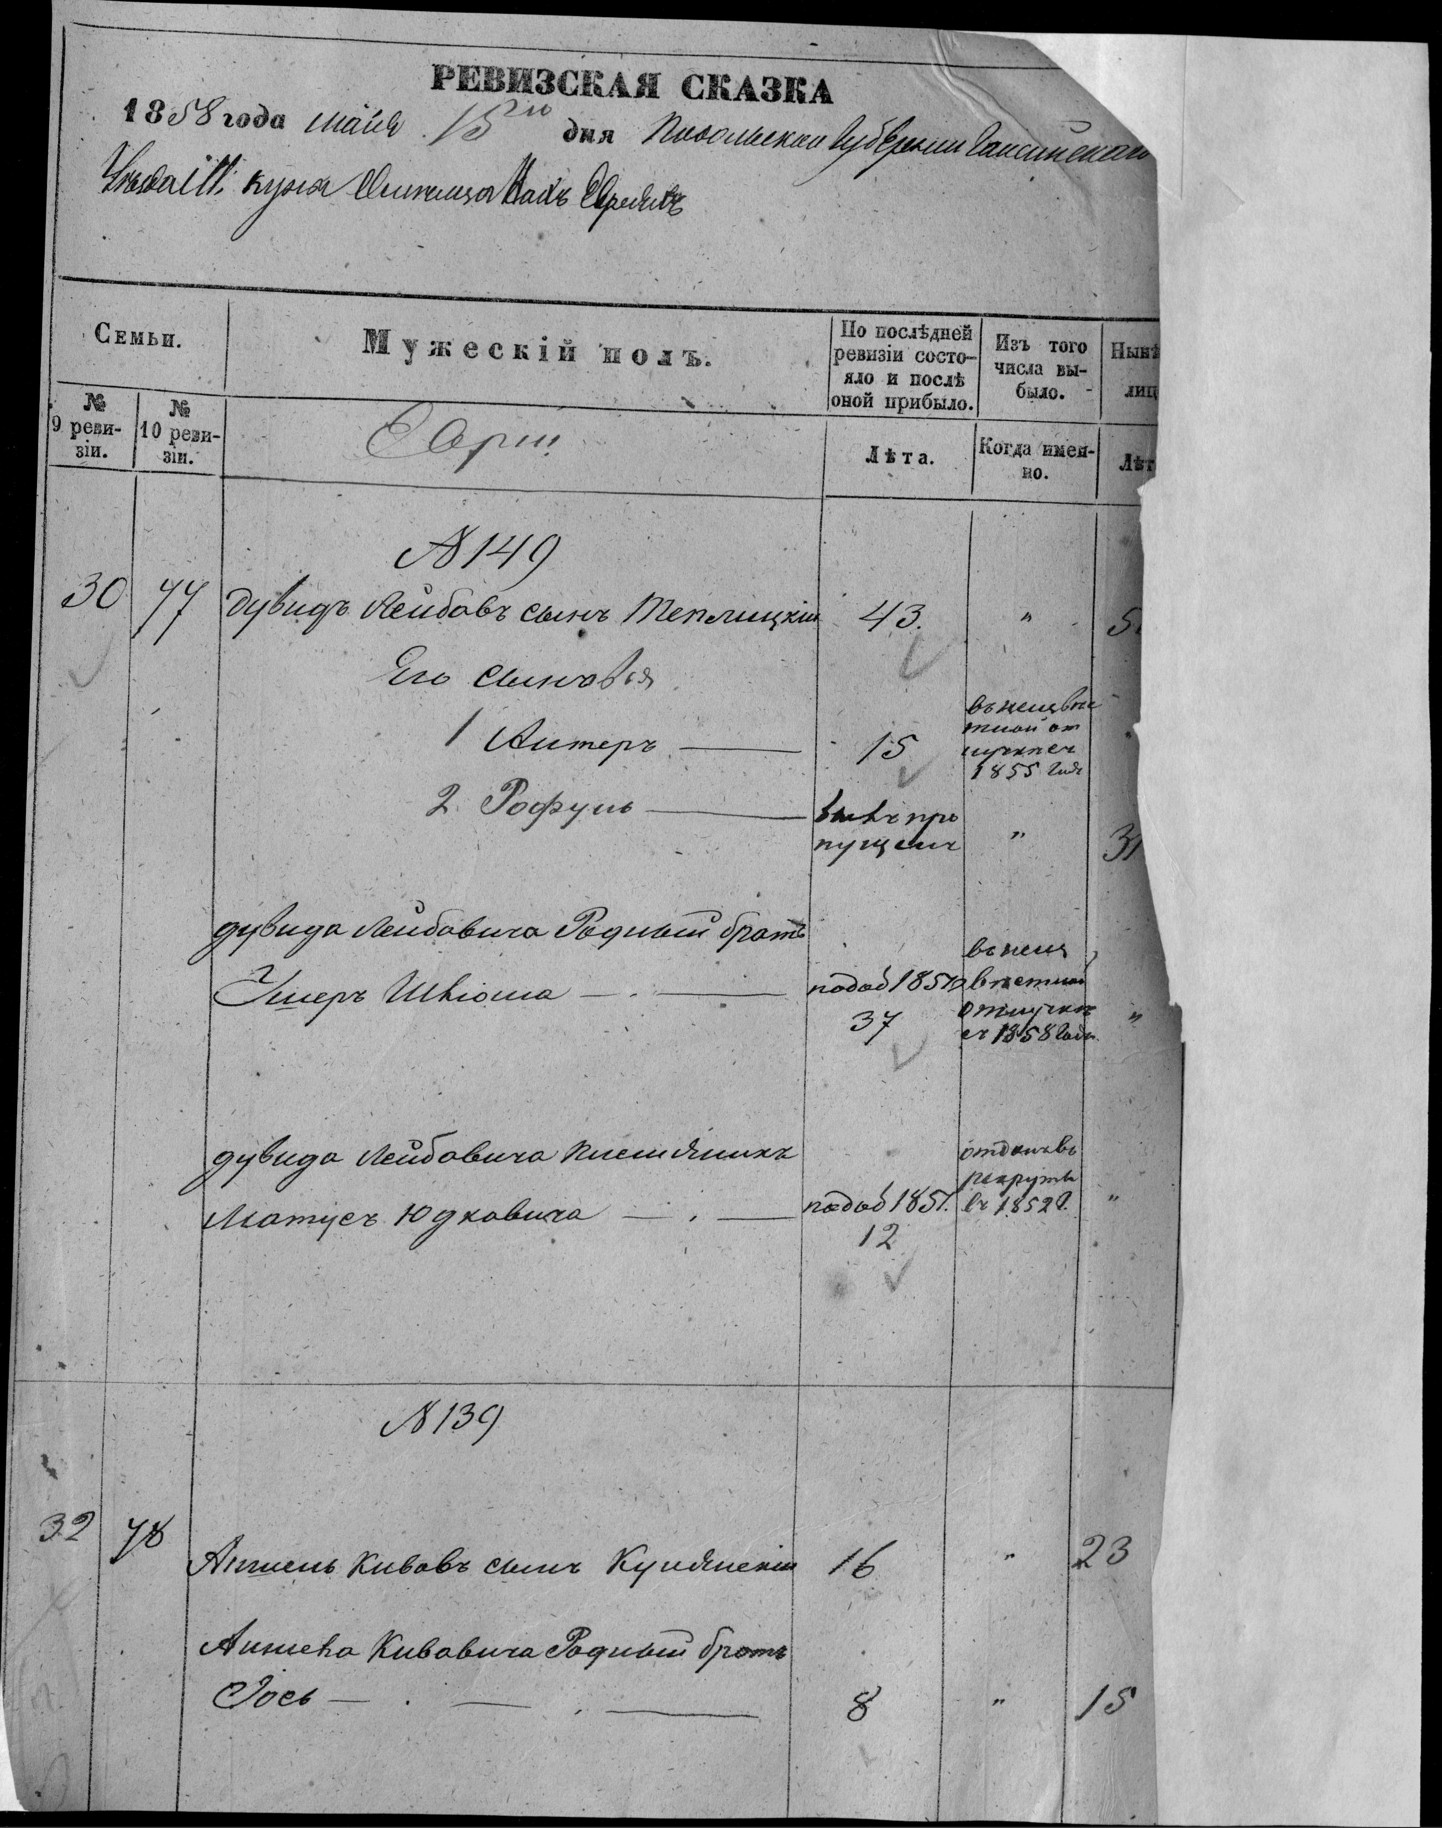 РЕВИЗСКАЯ СКАЗКА
1858 года мая 15го дня Подольской Губернии Гайсинского
Уезда
Семьи.
Мужескій полъ.
По послѣдней ревизіи состо-
яло и послѣ
оной прибыло.
Изъ того
числа вы-
было.
Нынѣ
лиц
№
9 реви-
зіи.
№
10 реви-
зіи.
Евреи
Лѣта.
Когда имен-
но.
Лѣт
№ 149
30 77 Дувидъ Лейбовъ сынъ Теплицкій 43. " 5
Его сыновья
1 Антеръ — 15
въ неизвѣс
тной от
лучке съ
1855 года
2 Рофуль — былъ про
пущенъ " 31
Дувида Лейбовича Родный братъ
Ушеръ Шлiома — . — по доб 1851 37
въ неиз
вѣстной
отлучкѣ
съ 1858 года "
Дувида Лейбовича племянникъ
Мотусъ Юдковича — . — по доб 1851. 12
отданъ въ
рекруты
въ 1852 г. "
№ 139
32 78 Аншель Кивовъ сынъ 16 " 23
Аншеля Кивовича Родный братъ
Іось — . — . — 8 " 15